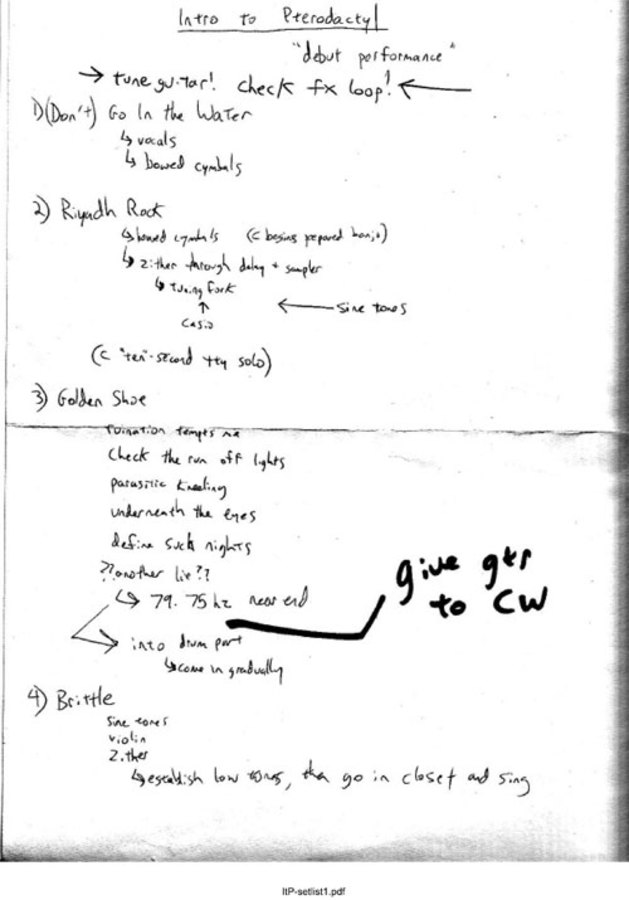 Intro to Pterodactyl
"debut performance"
→ tune guitar! check fx loop! ←
1) (Don't) Go In the Water
↳ vocals
↳ bowed cymbals
2) Riyadh Rock
↳ bowed cymbals (C begins prepared banjo)
↳ zither through delay + sampler
↳ tuning fork
↑ ← sine tones
casio
(C "ten"-second solo)
3) Golden Shoe
ruination tempts me
check the run off lights
parasitic kneeling
underneath the eyes
define such nights
??another line??
↳ 79.75 hz near end
give gtr
to CW
into drum part
↳ come in gradually
4) Brittle
sine tones
violin
zither
↳ establish low tones, then go in closet and sing
ItP-setlist1.pdf